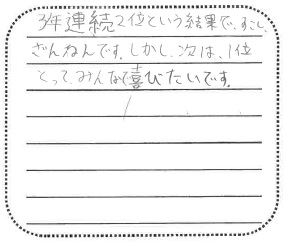 3年連続2位という結果で、すこし
ざんねんです。しかし、次は、1位
とって、みんなで喜びたいです。